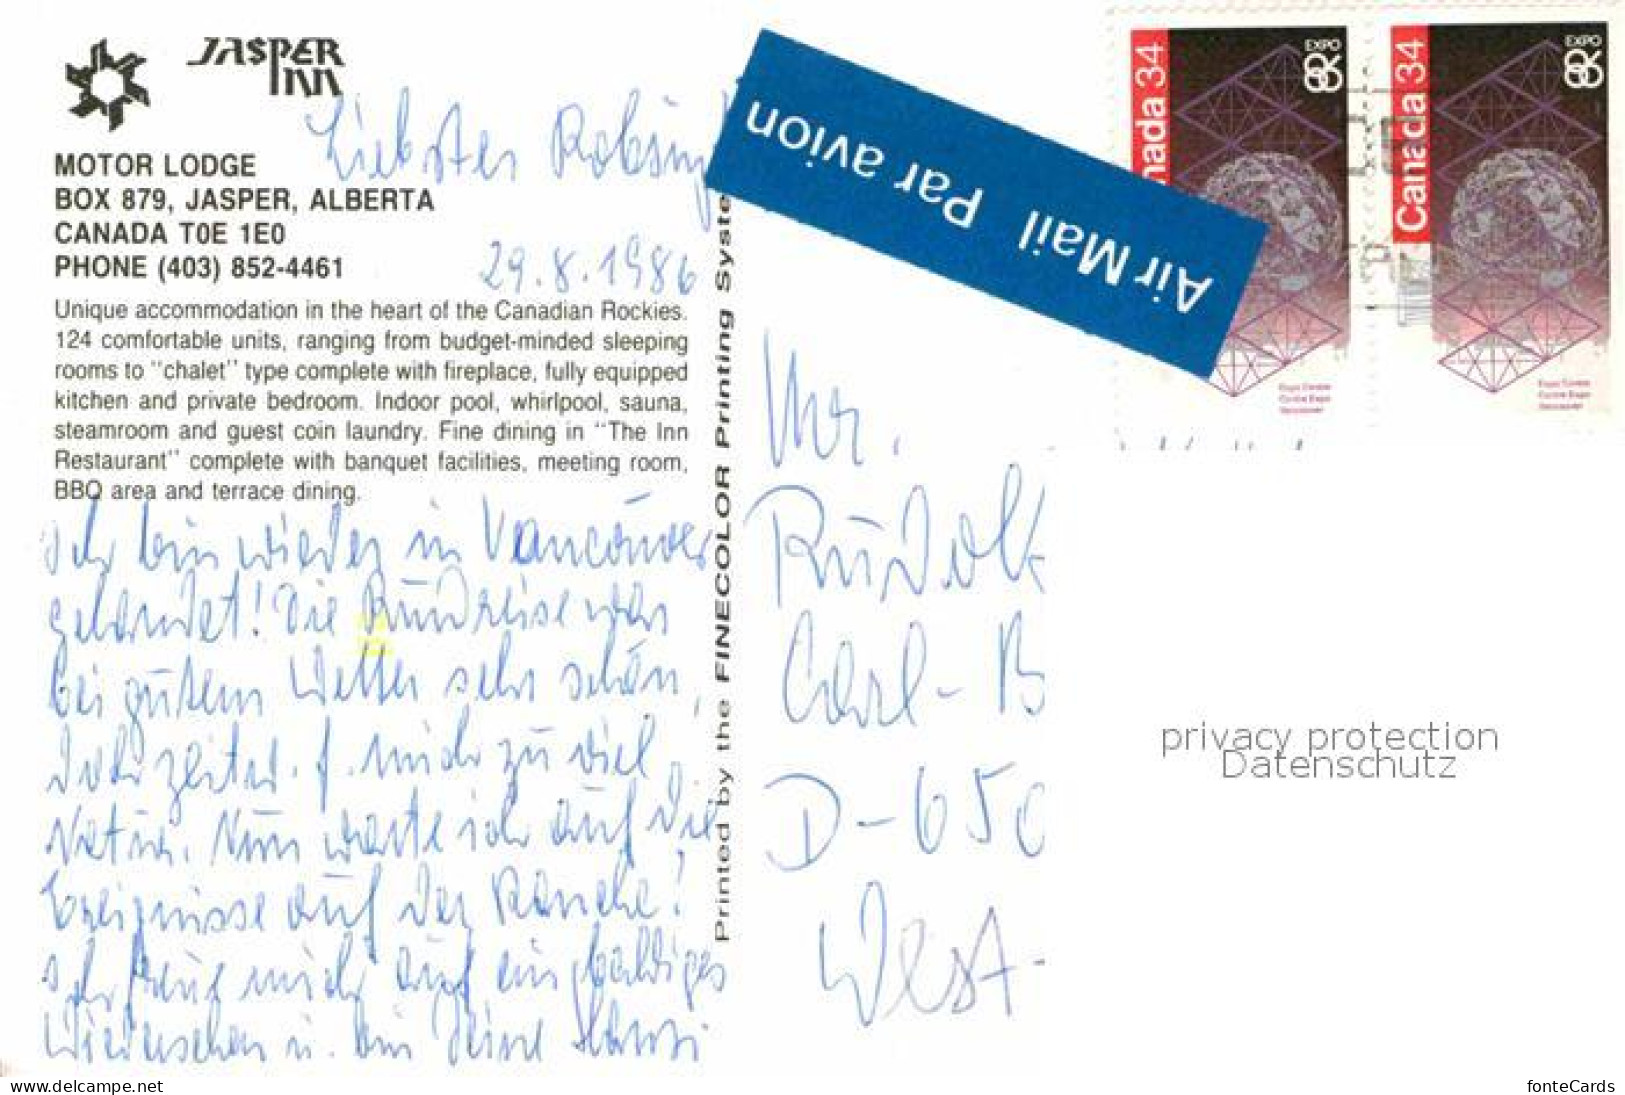 JASPER
INN
MOTOR LODGE
BOX 879, JASPER, ALBERTA
CANADA T0E 1E0
PHONE (403) 852-4461
Unique accommodation in the heart of the Canadian Rockies.
124 comfortable units, ranging from budget-minded sleeping
rooms to "chalet" type complete with fireplace, fully equipped
kitchen and private bedroom. Indoor pool, whirlpool, sauna,
steamroom and guest coin laundry. Fine dining in "The Inn
Restaurant" complete with banquet facilities, meeting room,
BBQ area and terrace dining.
Liebster
29.8.1986
Ich bin wieder in Vancouver
gelandet! Die Rundreise war
bei gutem Wetter sehr schön,
doch zeitw. f. mich zu viel
Natur. Nun warte ich auf die
Ereignisse auf der Ranch!
Ich freue mich auf ein baldiges
Wiedersehen u. bin Deine Hansi
Printed by the FINECOLOR Printing Syste
Air Mail Par avion
nada 34
EXPO
86
Expo Centre
Centre Expo
Vancouver
Canada 34
EXPO
86
Expo Centre
Centre Expo
Vancouver
Mr.
Rudolf
Carl-B
D-650
West-
privacy protection
Datenschutz
www.delcampe.net
fonteCards